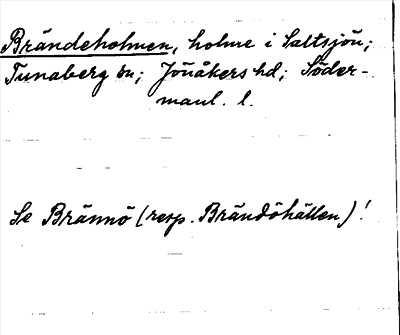 Brändeholmen, holme i Saltsjön;
Tunaberg sn; Jönåkers hd; Söder-
manl. l.
Se Brännö (resp. Brändöhällen)!